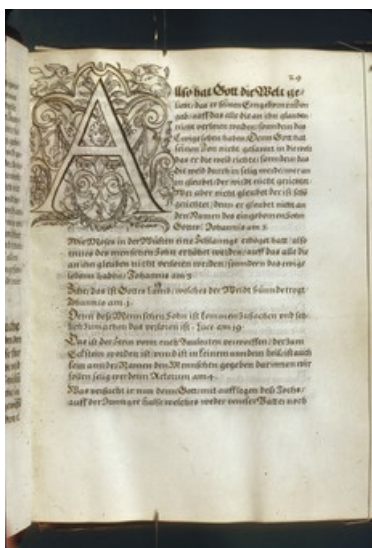 29
Also hat Gott die Welt ge-
liebt, das er seinen Eingebornen Son
gab, auff das alle die an ihn glauben
nicht verloren werden, sonndern das
Ewig leben haben, Denn Gott hat
seinen Son nicht gesannt in die welt
das er die welt richte, sonndern, das
die welt durch in selig werde, wer an
in gleubet, der wirdt nicht gerichtet,
Wer aber nicht gleubet der ist schon
gerichtet, denn er gleubet nicht an
den Namen des eingebornen Sohn
Gottes, Johannis am 3.
Wie Moses in der Wüsten eine Schlannge erhöhet hatt, also
mus des menschenn Sohn erhöhet werden, auff das alle die
an ihn gleuben nicht verloren werden, sonndern das ewige
lebenn habbenn Johannis am 3
Sihe, das ist Gottes Lamb, welches der Weldt Sünnde tregt,
Johannis am 1.
Denn deß Menschen Sohn ist kommen zusuchen und seh-
lich zumachen das verloren ist. Luce am 19
Das ist der Stein vonn euch Bauleuten verworffen, der zum
Eckstein worden ist, unnd ist in keinem anndern heil, ist auch
kein annder Namen den Mennschen gegeben darinnen wir
sollen selig werdenn Actorum am 4.
Was versucht ir nun denn Gott, mit aufflegen deß Jochs,
auff der Juunger halse welches weder unnser Vätter noch